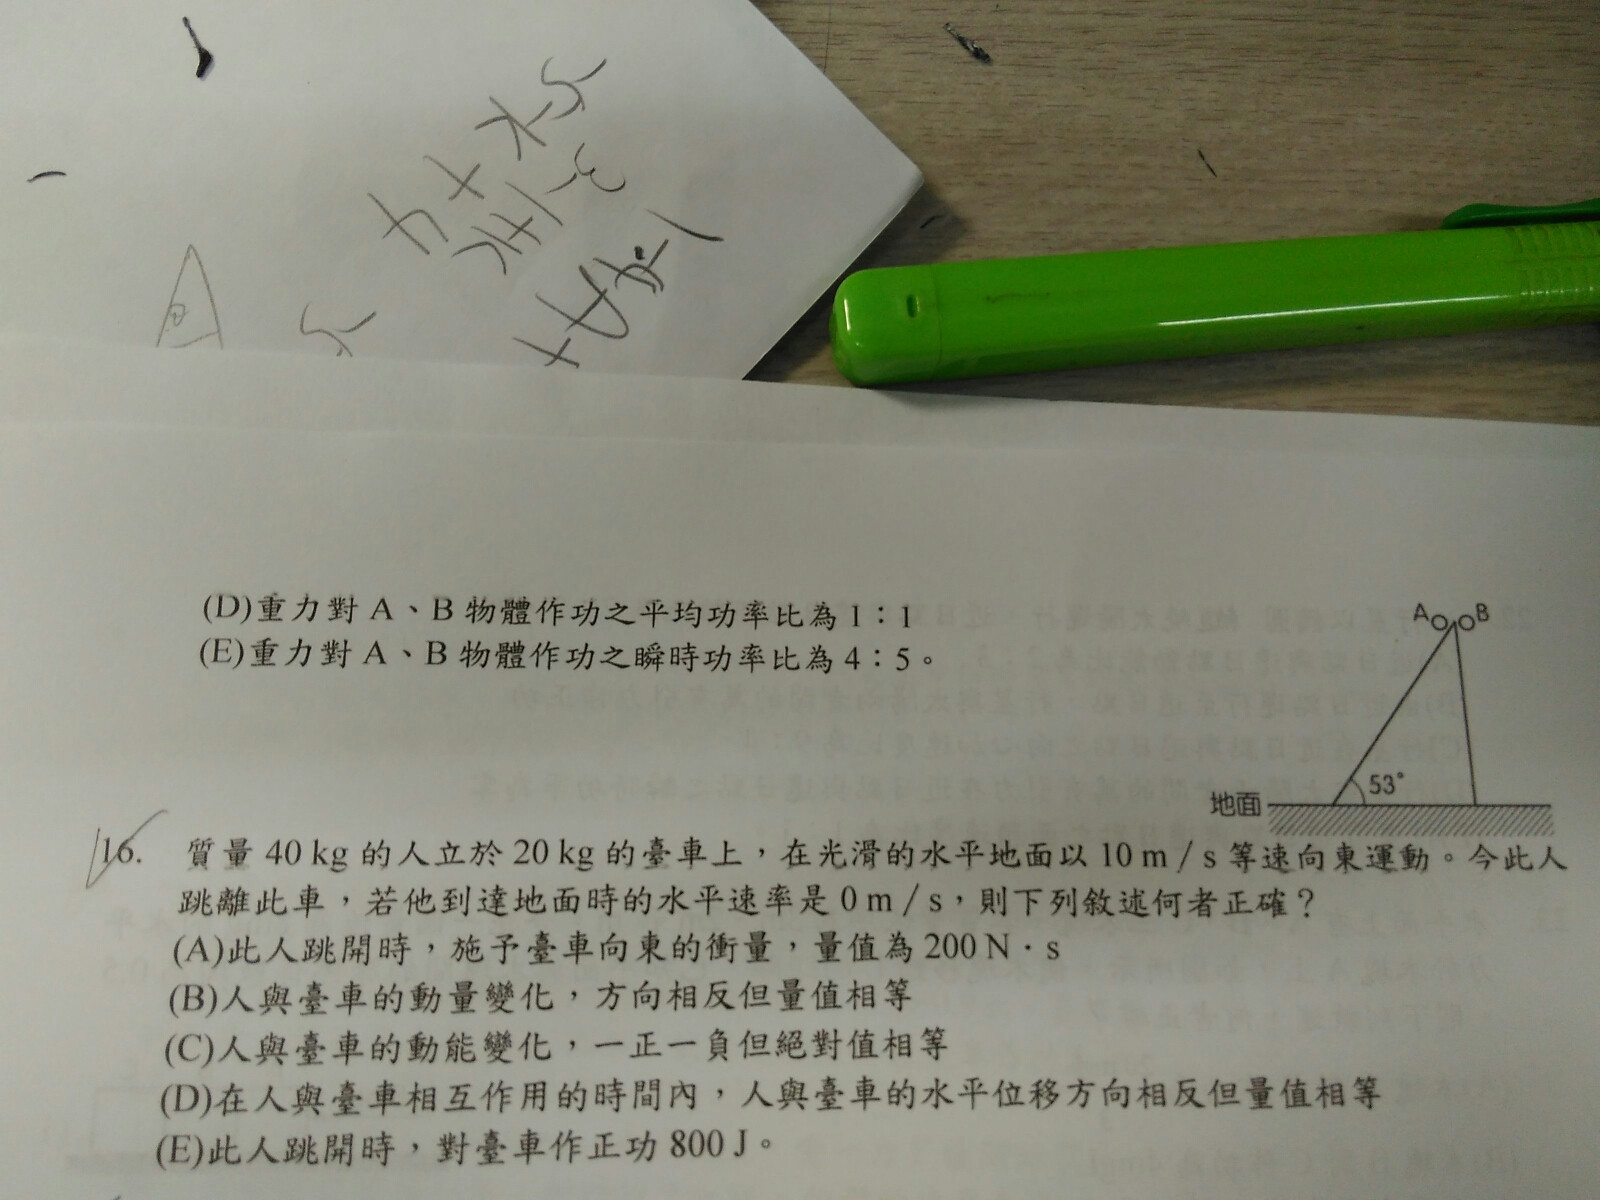 (D)重力對 A、B 物體作功之平均功率比為 1：1
(E)重力對 A、B 物體作功之瞬時功率比為 4：5。
A B
53°
地面
16. 質量 40 kg 的人立於 20 kg 的臺車上，在光滑的水平地面以 10 m / s 等速向東運動。今此人
跳離此車，若他到達地面時的水平速率是 0 m / s，則下列敘述何者正確？
(A)此人跳開時，施予臺車向東的衝量，量值為 200 N · s
(B)人與臺車的動量變化，方向相反但量值相等
(C)人與臺車的動能變化，一正一負但絕對值相等
(D)在人與臺車相互作用的時間內，人與臺車的水平位移方向相反但量值相等
(E)此人跳開時，對臺車作正功 800 J。